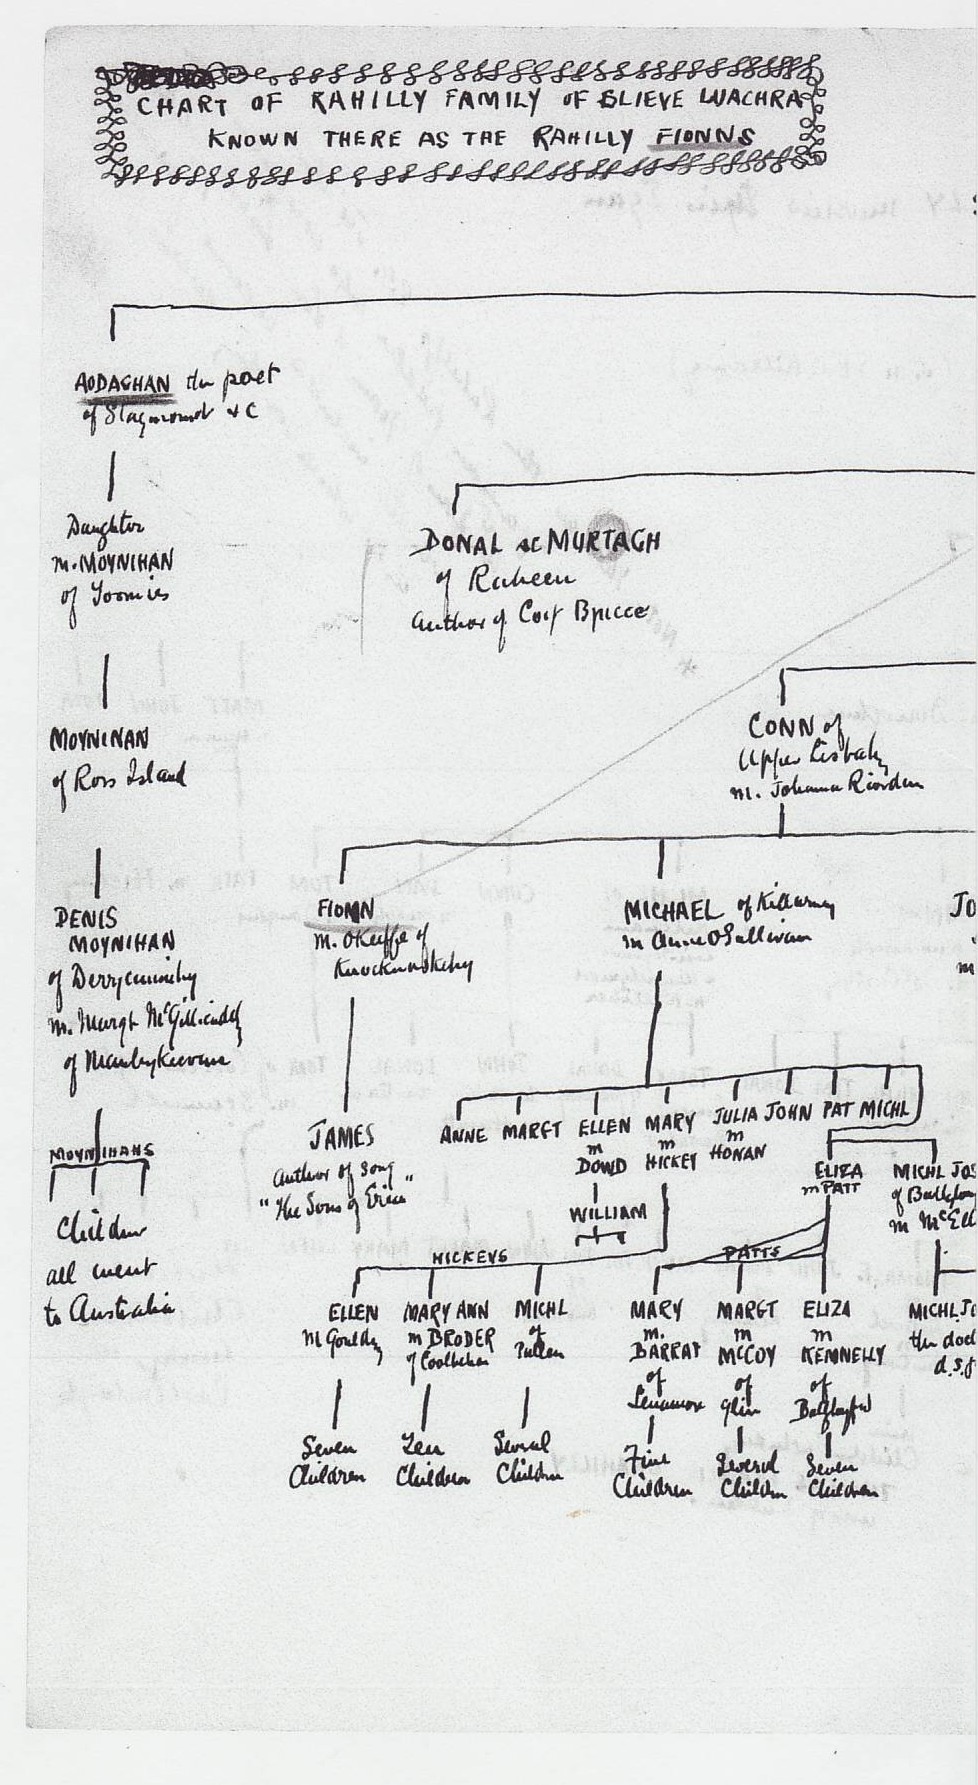 CHART OF RAHILLY FAMILY OF SLIEVE LUACHRA
KNOWN THERE AS THE RAHILLY FIONNS
AODAGHAN the poet
of Stagmount & C
Daughter
m. MOYNIHAN
of Toomies
DONAL MURTAGH
of Raheen
author of
MOYNIHAN
of Ross Island
CONN of
Upper Lisbaby
m. Johanna Riordan
DENIS
MOYNIHAN
of Derrycunnihy
m. Margt McGillicuddy
of
FIONN
m. OKeiffe of
MICHAEL of Killarney
m Anne OSullivan
JO
m
MOYNIHANS
Children
all went
to Australia
JAMES
author of song
"The Sons of Erin"
ANNE MARGT ELLEN MARY JULIA JOHN PAT MICHL
m m m
DOWD HICKEY HONAN
WILLIAM
ELIZA
m PATT
MICHL JOS
of
m McEll
HICKEYS
PATTS
ELLEN MARY ANN MICHL MARY MARGT ELIZA MICHL JO
m Goulding m BRODER of m. m m the doc
of Pallas BARRAT McCOY KENNELLY d.s.p
of of of
Glin
Seven Ten Several Five Several Seven
Children Children Children Children Children Children